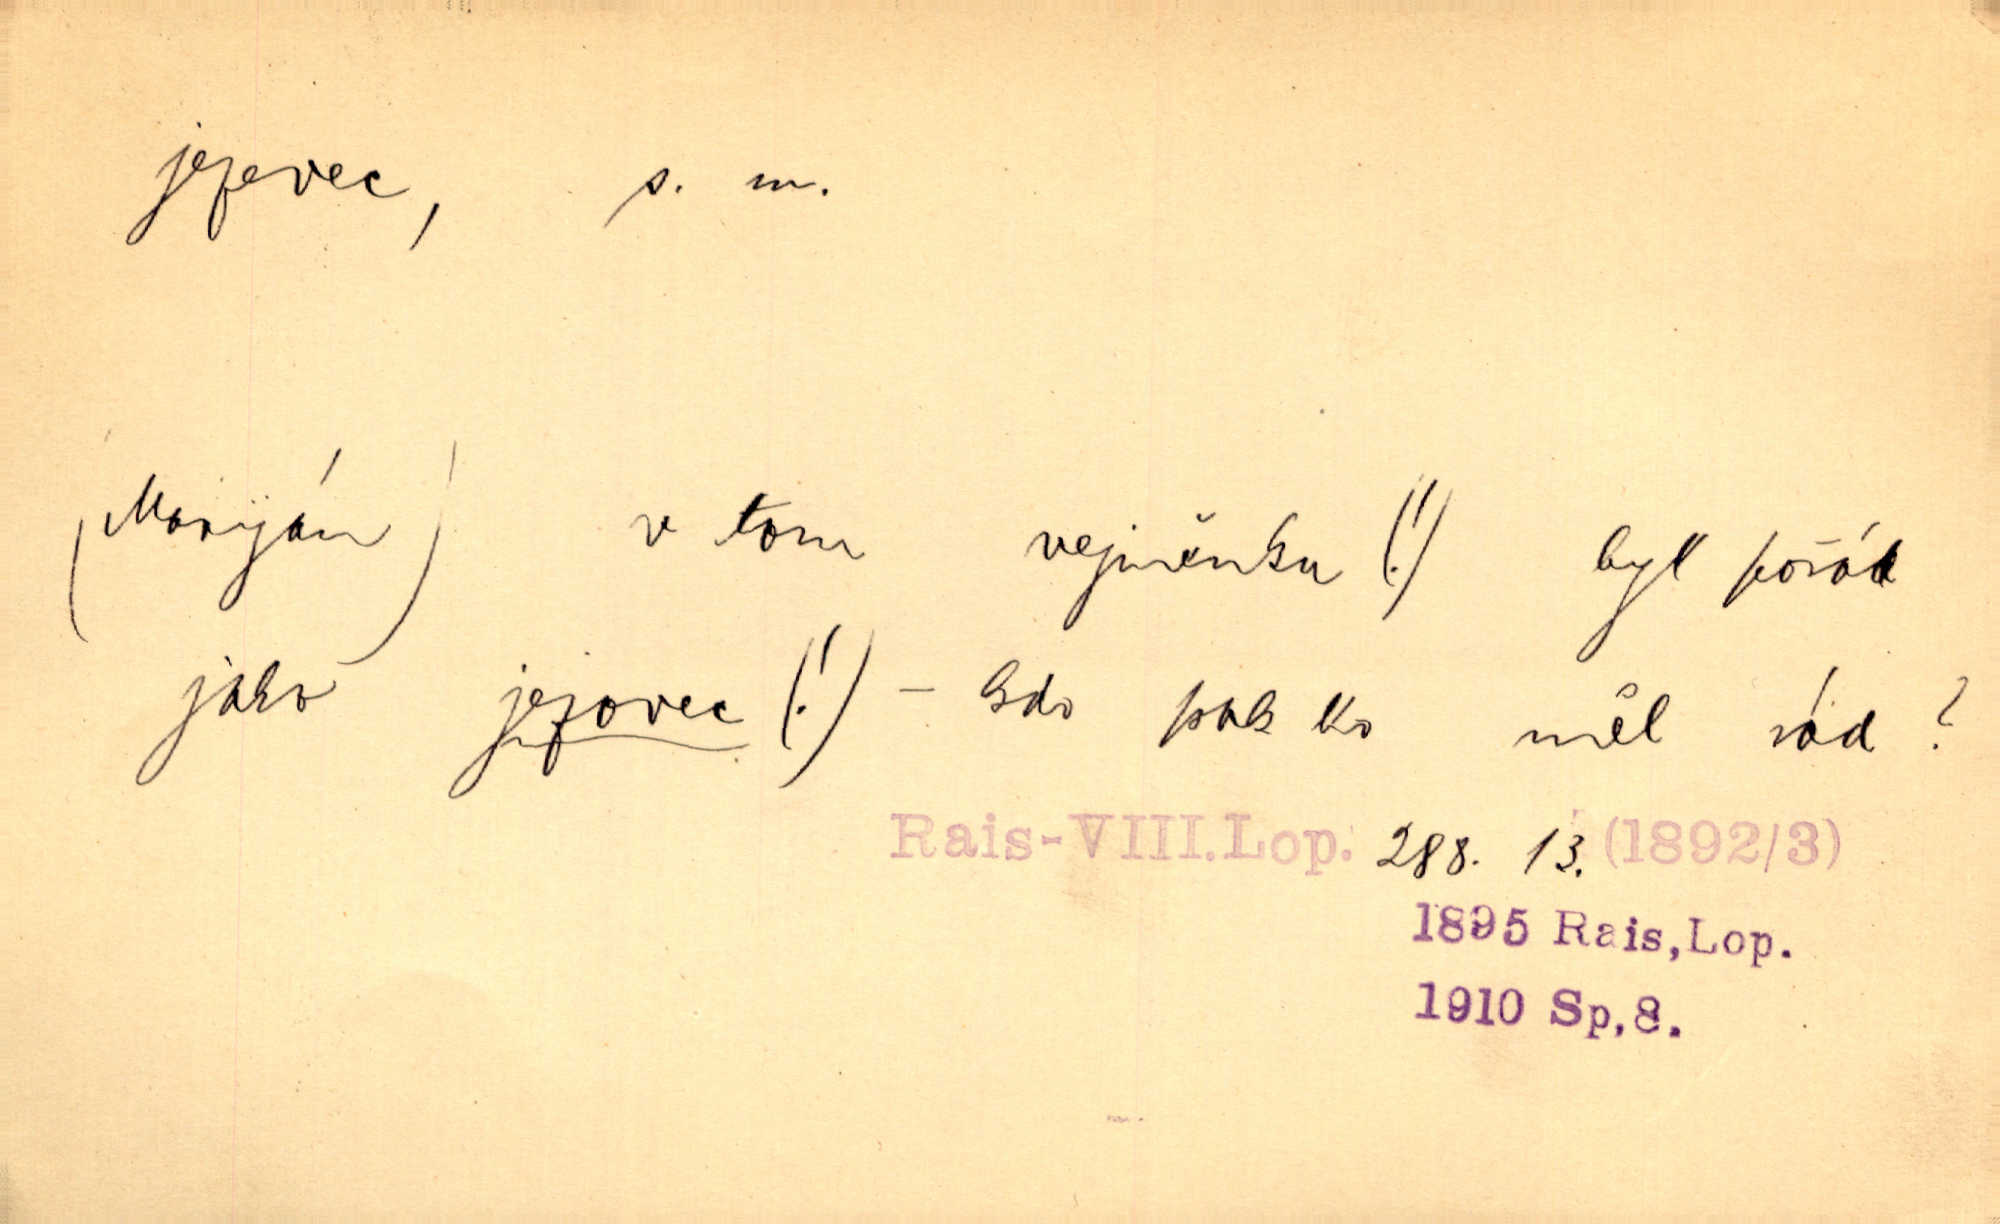 jezevec, s. m.
(Marýján) v tom vejměnku (!) byl pořád
jako jezovec (!) – kdo pak ho měl rád?
Rais-VIII.Lop. 288. 13. (1892/3)
1895 Rais,Lop.
1910 Sp,8.